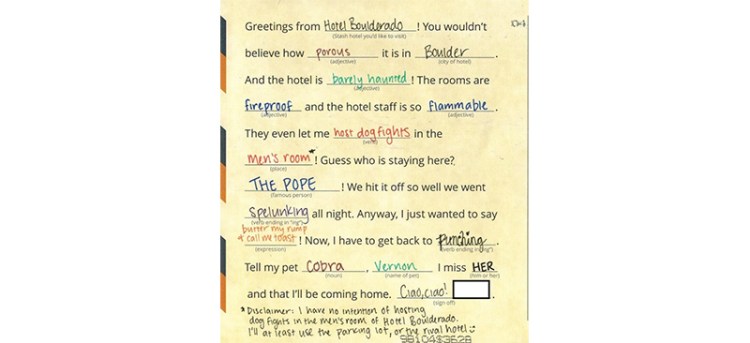 Greetings from Hotel Boulderado! You wouldn't
(Stash hotel you'd like to visit)
believe how porous it is in Boulder.
(adjective) (city of hotel)
And the hotel is barely haunted! The rooms are
(adjective)
fireproof and the hotel staff is so flammable.
(adjective) (adjective)
They even let me host dog fights in the
(verb)
men's room*! Guess who is staying here?
(place)
THE POPE! We hit it off so well we went
(famous person)
Spelunking all night. Anyway, I just wanted to say
(verb ending in "ing")
butter my rump
& call me toast! Now, I have to get back to punching.
(expression) (verb ending in "ing")
Tell my pet Cobra, Vernon I miss HER
(noun) (name of pet) (him or her)
and that I'll be coming home. Ciao, ciao!.
(sign-off)
* Disclaimer: I have no intention of hosting
dog fights in the men's room of Hotel Boulderado.
I'll at least use the parking lot, or the rival hotel